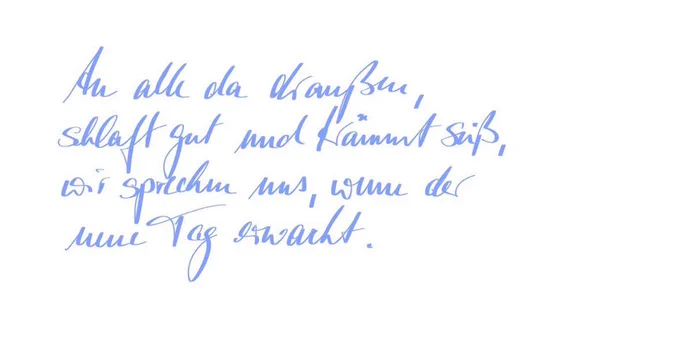 An alle da draußen,
schlaft gut und träumt süß,
wir sprechen uns, wenn der
neue Tag erwacht.